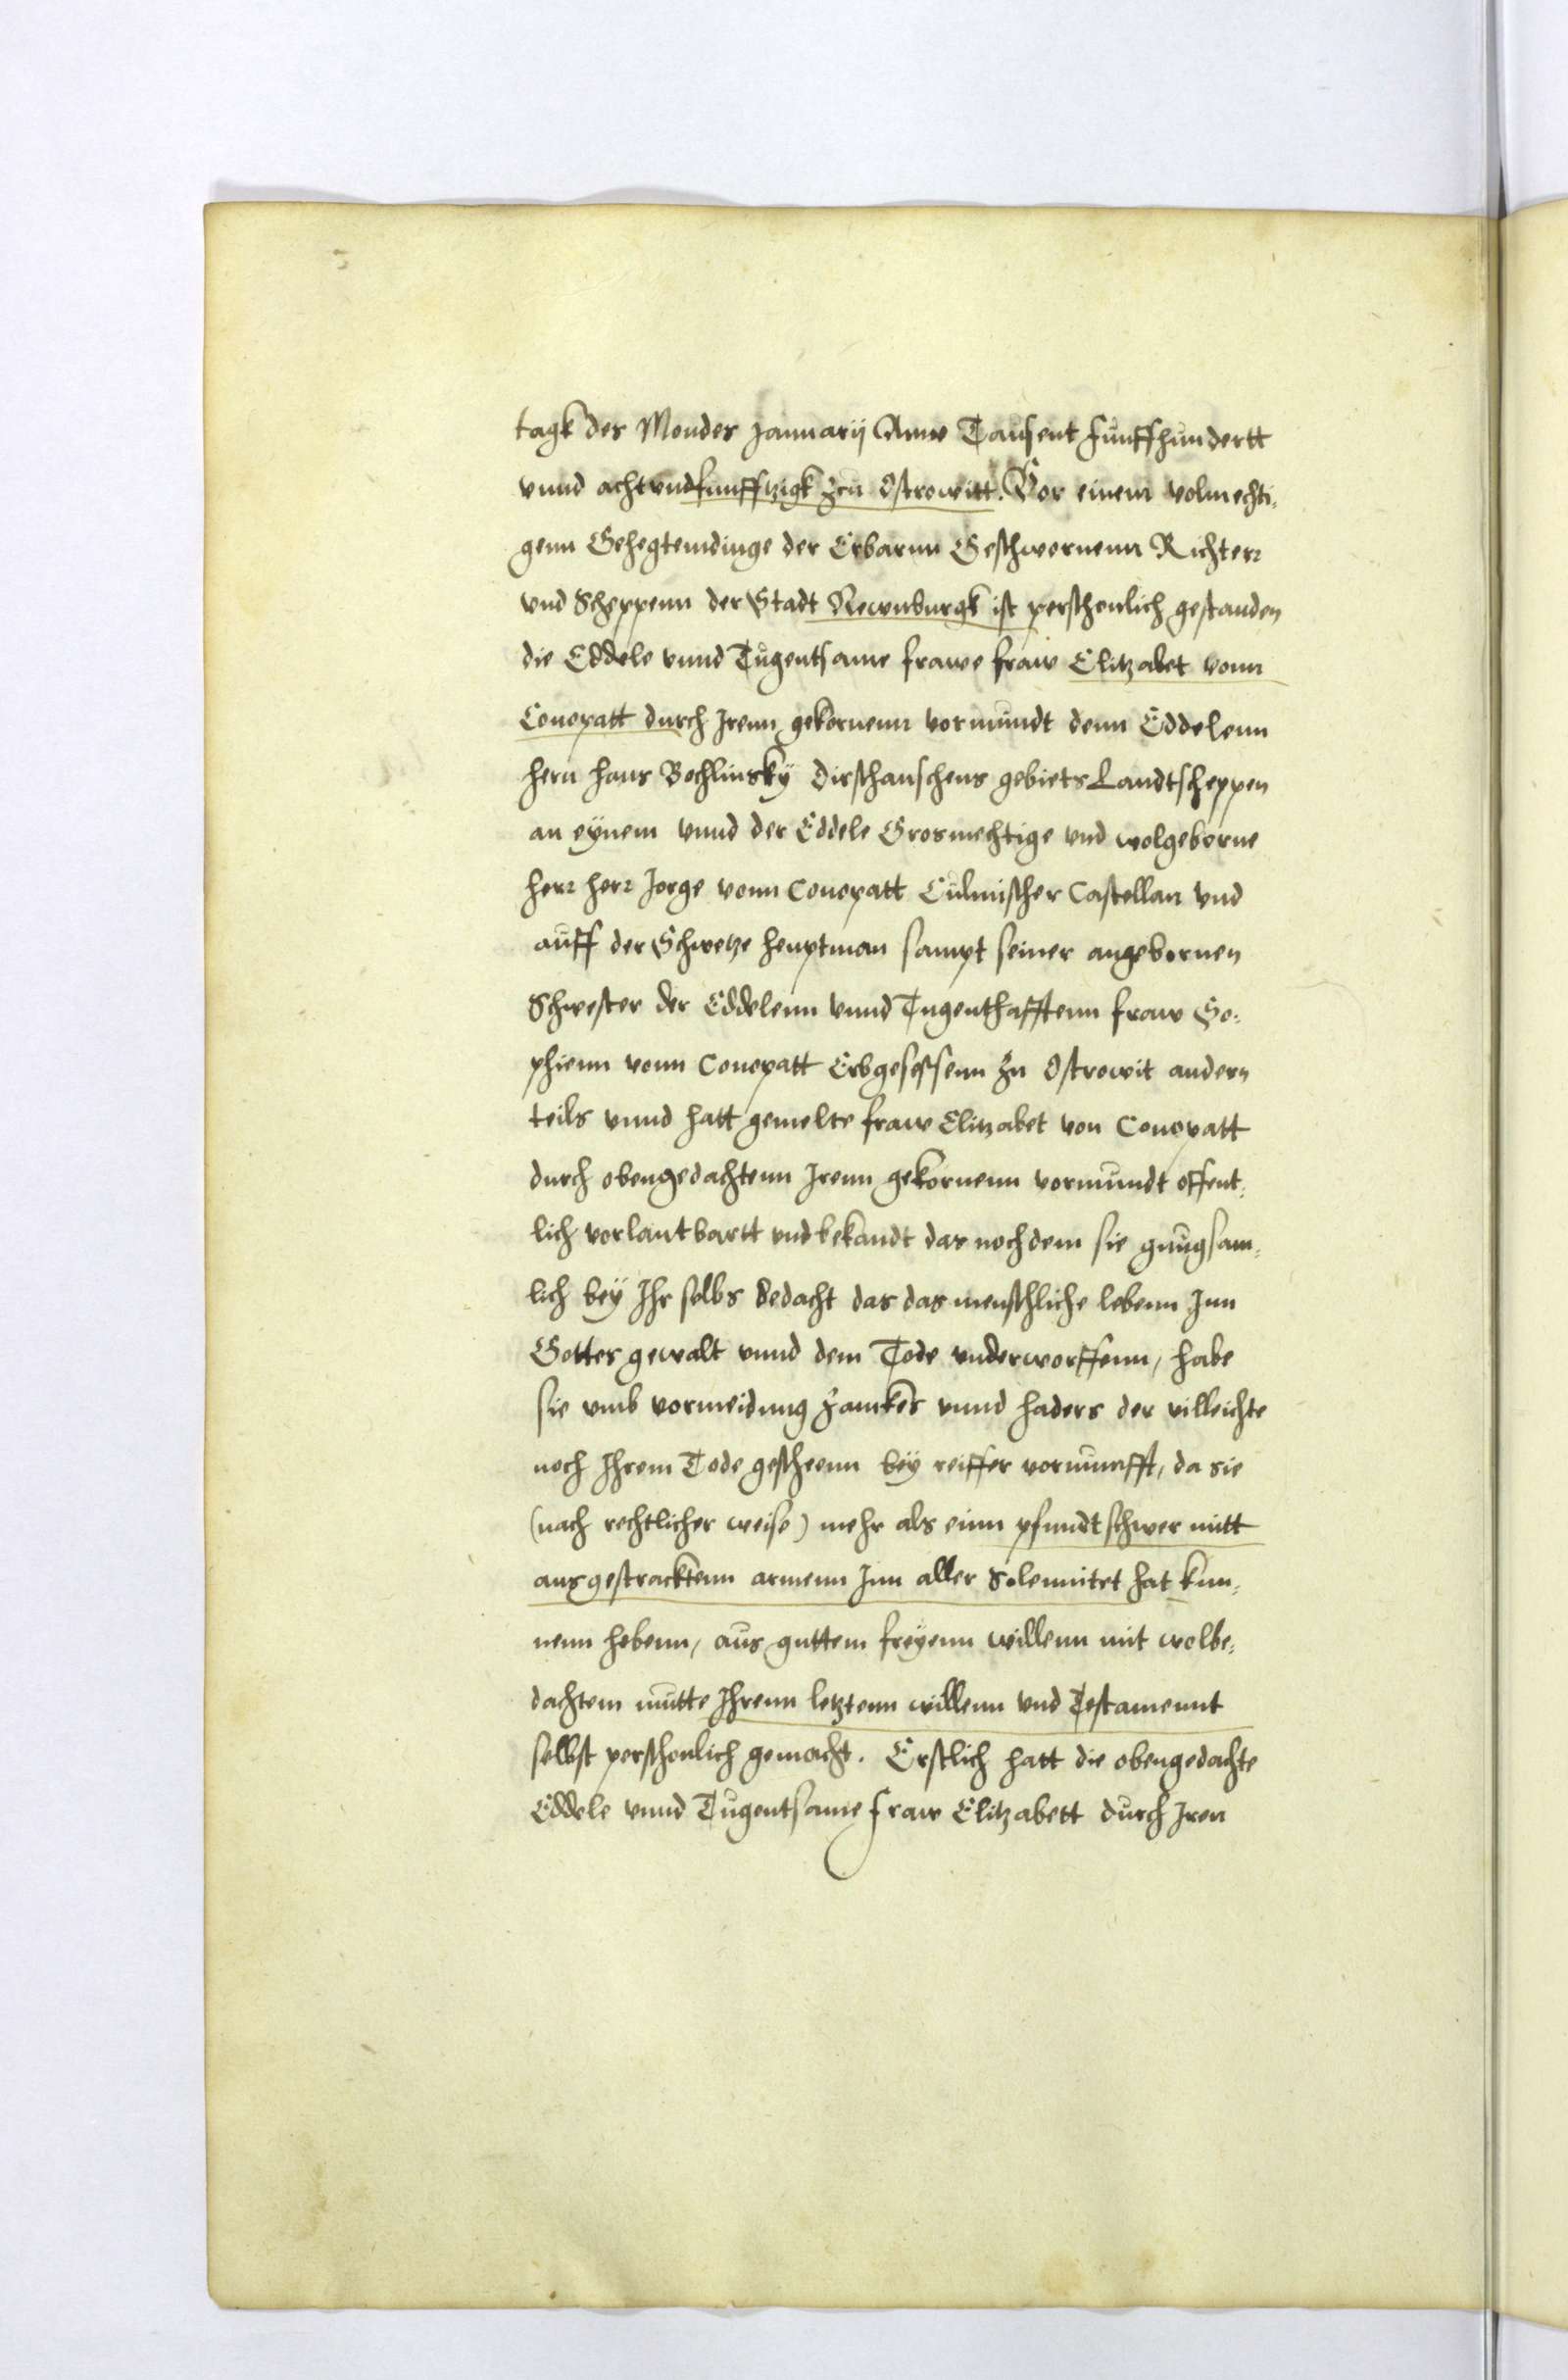 tagk des Mondes Januarij Anno Tausent funffhundertt
vnnd achtvndfunfftzigk Zcu Ostrowitt. Vor einem volmechti¬
genn Gehegtemdinge der Erbarnn Geschwornenn Richterr
vnd Scheppenn der Stadt Newnburgk ist perschonlich gestanden
die Eddele vnnd Tugentsame frawe fraw Elitzabet vonn
Conopatt durch Irenn gekornenn vormundt denn Eddelenn
hern hans Bochlinsky Dirschauschens gebiets Landtscheppen
an eynem vnnd der Eddele Grosmechtige vnd wolgeborne
herr herr Jorge vonn Conopatt Culmischer Castellan vnd
auff der Schwetze heuptman sampt seiner angebornen
Schwester der Eddelenn vnnd Tugenthafftenn fraw So¬
phienn vonn Conopatt Erbgesessenn Zu Ostrowit andern
teils vnnd hatt gemelte fraw Elitzabet von Conopatt
durch obengedachtenn Irenn gekornenn vormundt offent¬
lich vorlautbartt vnd bekandt das nochdem sie gnugsam¬
lich bey Ihr selbs bedacht das das menschliche lebenn Inn
Gottes gewalt vnnd dem Tode vnderworffenn, habe
sie vmb vormeidung Zanckes vnnd haders der villeichte
noch Ihrem Tode gescheenn bey reiffer vornunfft, da sie
(nach rechtlicher weise) mehr als einn pfundt schwer mitt
ausgestracktenn armenn Inn aller Solennitet hat kun¬
nenn hebenn, aus guttem freyenn willenn mit wolbe¬
dachtem mutte Ihrenn letztenn willenn vnd Testamennt
selbst perschonlich gemacht. Erstlich hatt die obengedachte
Eddele vnnd Tugentsame fraw Elitzabett durch Iren